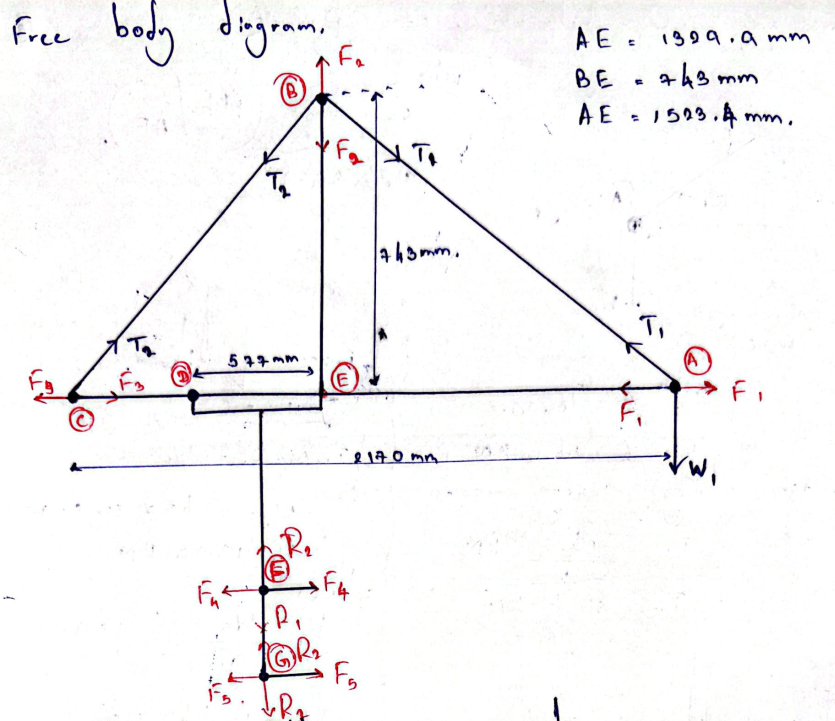 Free body diagram.
AE = 1329.9 mm
BE = 743 mm
AE = 1523.4 mm.
F2
B
F2
T1
T2
743 mm.
T1
T2
577 mm
A
F3
F3
D
E
F1
F1
C
2170 mm
W1
R2
E
F4
F4
R1
G
R2
F5
F5
R2